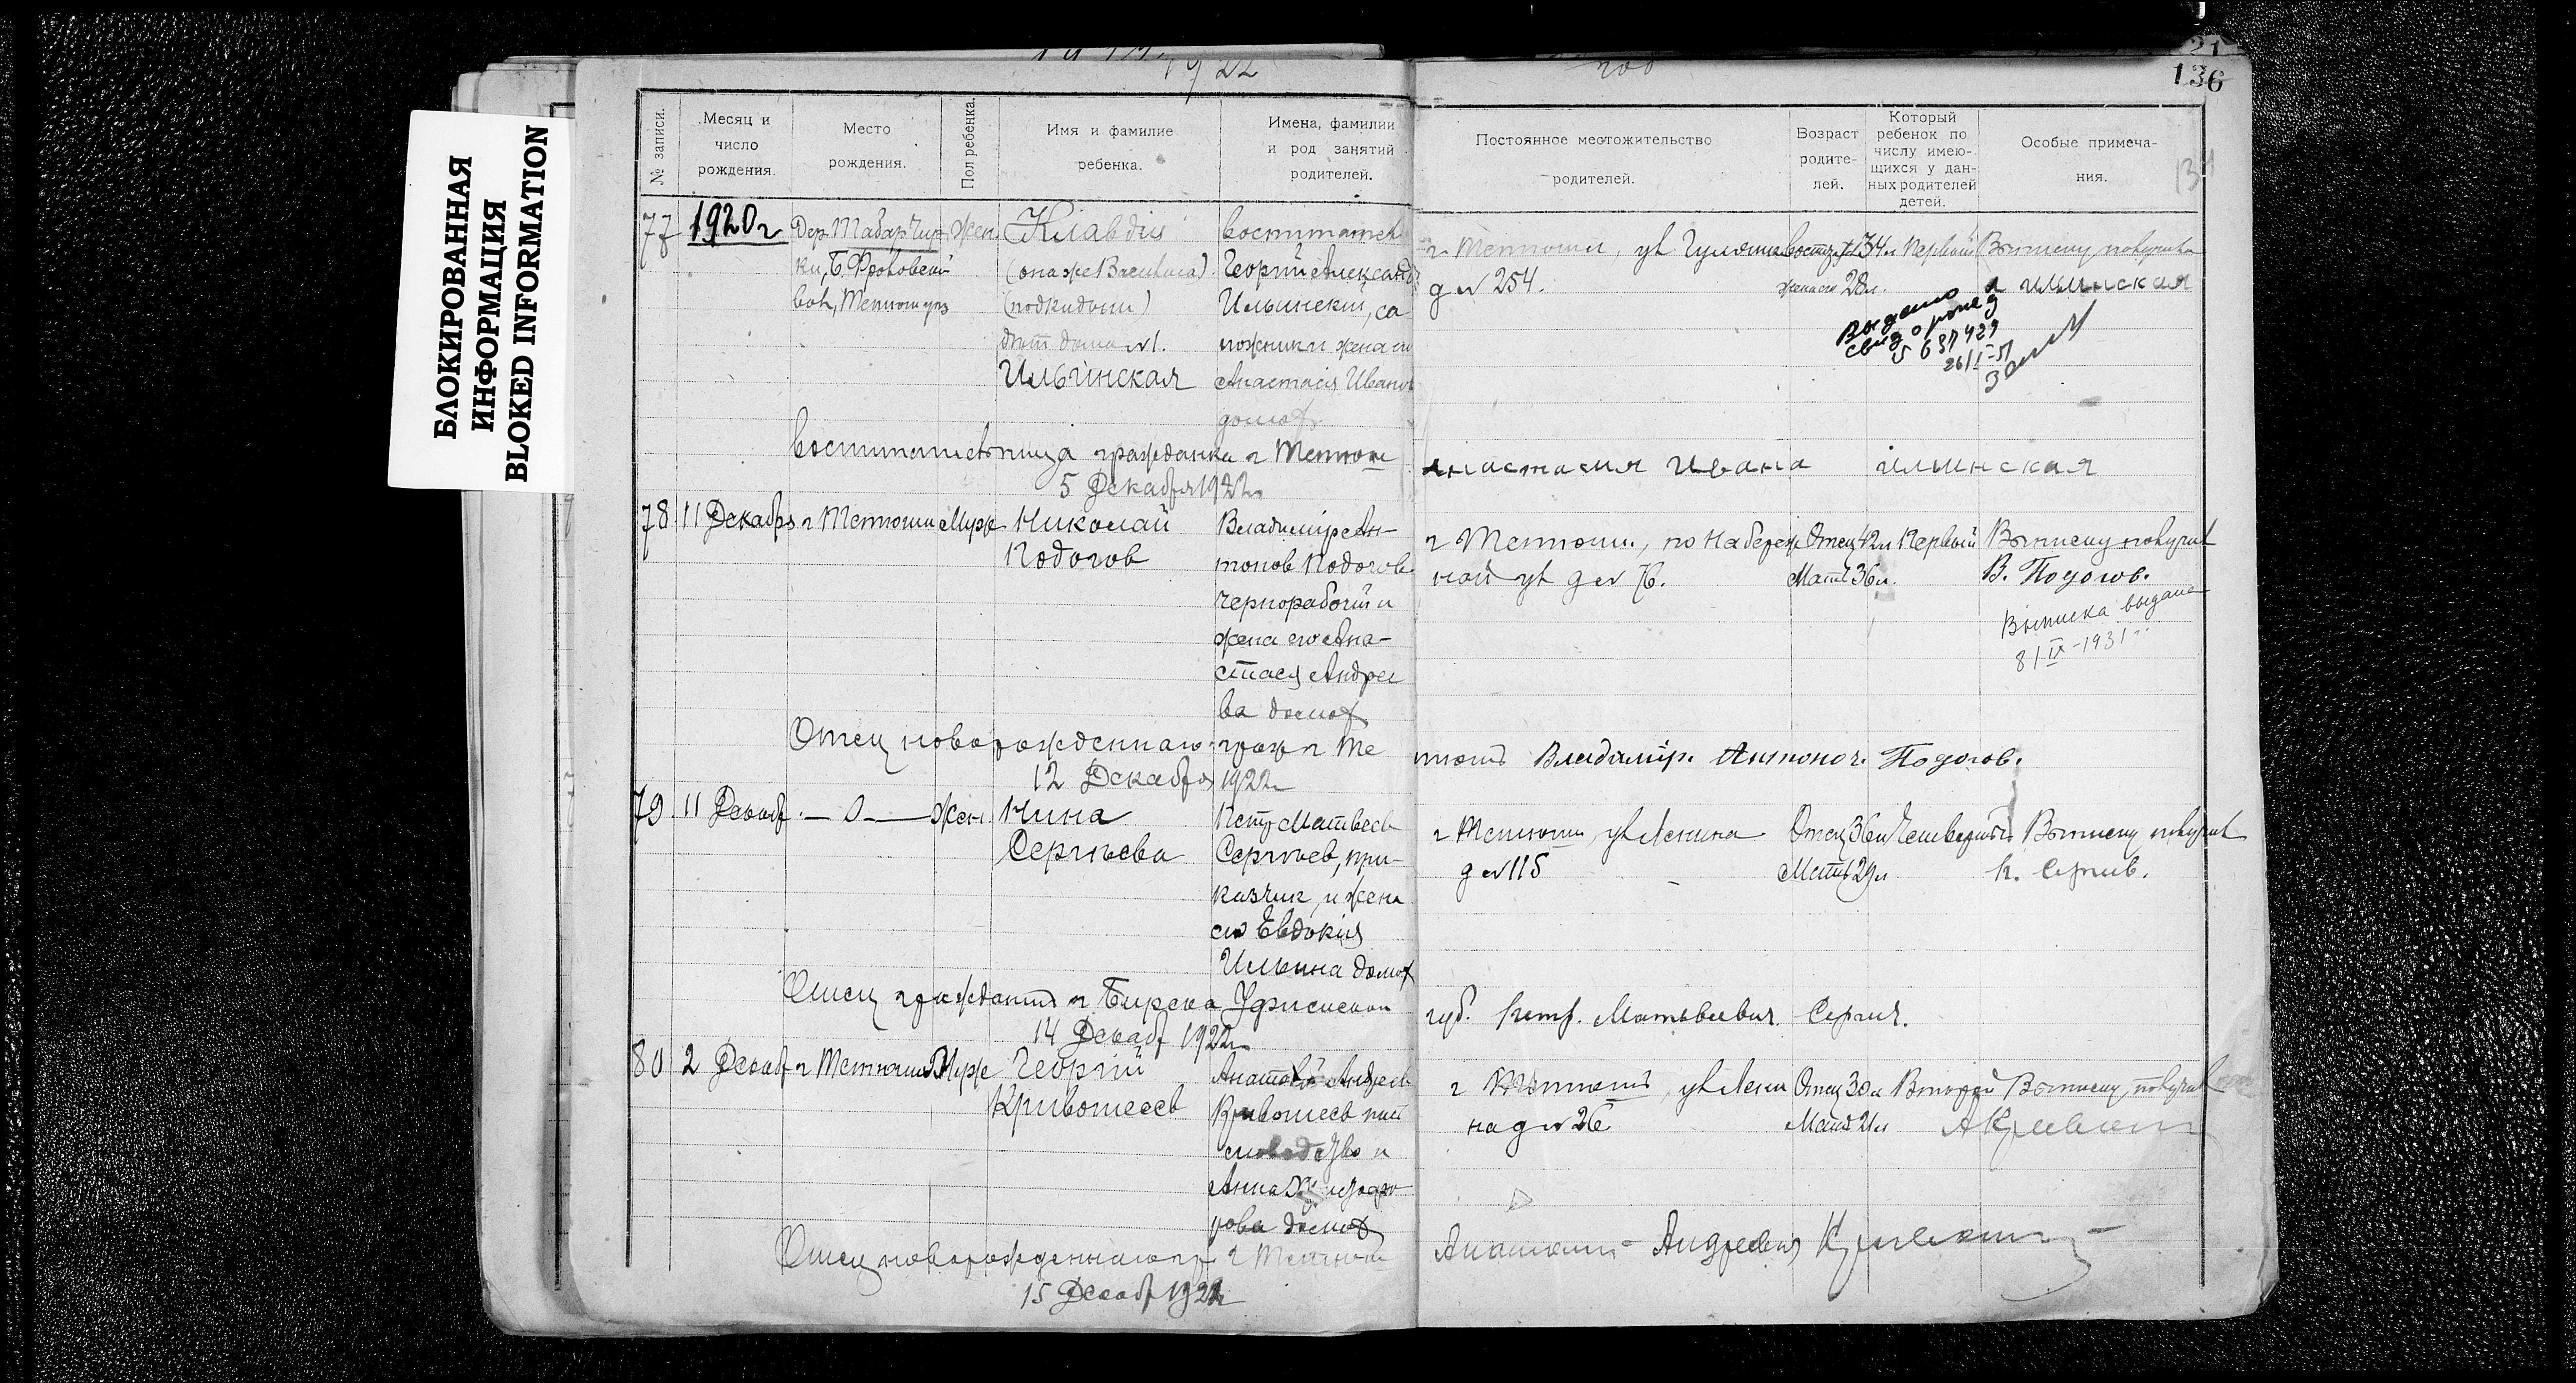 БЛОКИРОВАННАЯ
ИНФОРМАЦИЯ
BLOKED INFORMATION
1922
год
136
134
№ записи.
Месяц и число рождения.
Место рождения.
Пол ребенка.
Имя и фамилие ребенка.
Имена, фамилии и род занятий родителей.
Постоянное местожительство родителей.
Возраст родителей.
Который ребенок по числу имеющихся у данных родителей детей.
Особые примечания.
77
1920 г
жен.
Клавдия
(подкидыш)
дет дома №1.
Ильинская
Георгий Александ
Ильинский, са
пожник и жена его
Анастасія Иванов
домох
г Тетюши, ул
д № 254.
34 л Первый
28 л.
Выписку получила
а илинская
Выдано
свид о рожд
637429
воспитательница гражданка г Тетюш
Анастасия Ивана илинская
5 Декабря 1922 г
78
11 Декабрь
г Тетюши
Муж
Николай
Подогов
Владимір Ан-
тонов Подогов
чернорабочий и
жена его Ана-
стасія Андрее
ва домох
г Тетюши, по Набереж
ной ул д № 76.
Отец 42 л Первый
Мать 36 л.
Выписку получил
В. Подогов.
Выписка выдана
8/IX-1931 г.
Отец новорожденнаго граж г Те
тюш Владимір. Антонов. Подогов.
12 Декабря 1922 г
79
11 Декаб.
— 0 —
Жен
Нина
Сергеева
Петр Матвеев
Сергеев, при-
казчик, и жена
его Евдокія
Ильина домох
г Тетюши ул Ленина
д № 115
Отец 36 л Четвертый
Мать 29 л
Выписку получил
Отец гражданин г Бирска Уфимской
губ. Петр. Матвеевич. Сергиев.
14 Декаб 1922 г
80
2 Декаб
г Тетюши
Муж
Георгій
Кривошеев
Анатолій Андреев
Кривошеев
Анна
рова домох
г Тетюши, ул Лени
на д № 26
Отец 30 л Второй
Мать 21 л
Выписку получил
Отец новорожденнаго гр г Тетюш
Анатолий Андреевич
15 Декаб 1922 г